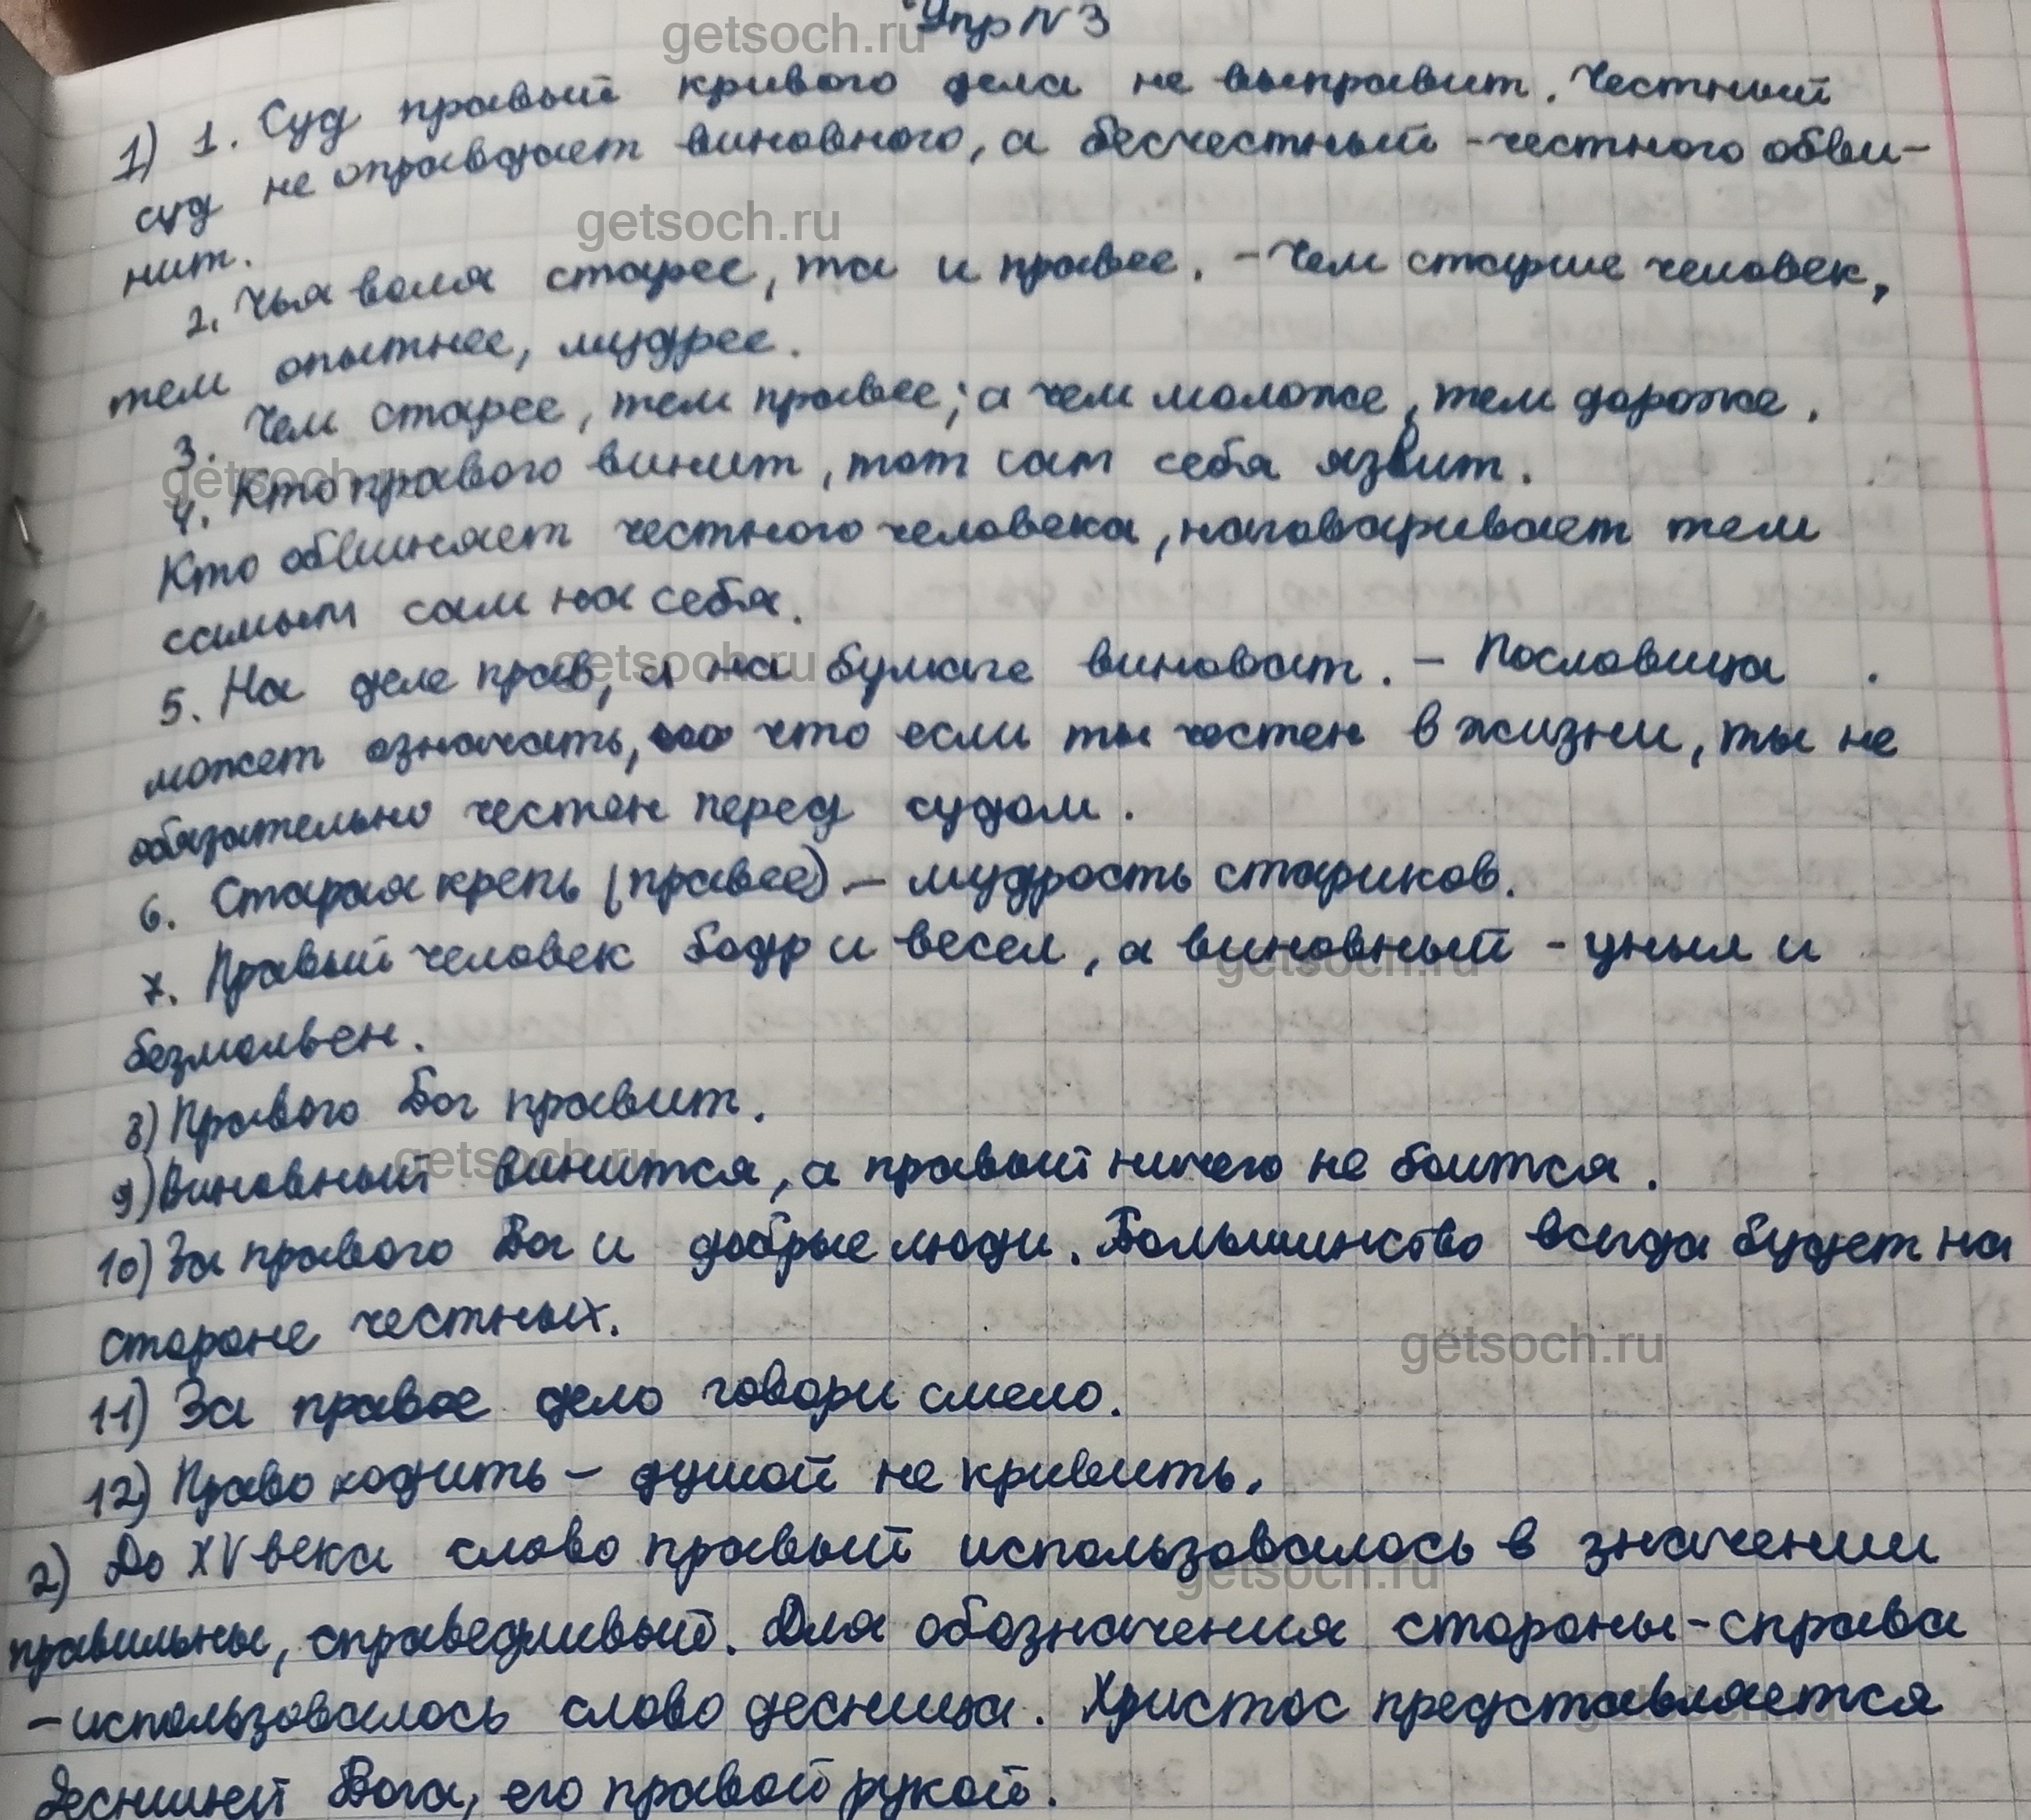 Упр N 3
1) 1. Суд правый кривого дела не выправит. Честный
суд не оправдает виновного, а бесчестный - честного обви-
нит.
2. Чья воля старее, та и правее. - Чем старше человек,
тем опытнее, мудрее.
3. Чем старее, тем правее; а чем моложе, тем дороже.
4. Кто правого винит, тот сам себя язвит.
Кто обвиняет честного человека, наговаривает тем
самым сам на себя.
5. На деле прав, а на бумаге виноват. - Пословица
может означать, что если ты честен в жизни, ты не
обязательно честен перед судом.
6. Старая крепь (правее) - мудрость стариков.
7. Правый человек бодр и весел, а виновный - уныл и
безмолвен.
8) Правого Бог правит.
9) Виновный винится, а правый ничего не боится.
10) За правого Бог и добрые люди. Большинство всегда будет на
стороне честных.
11) За правое дело говори смело.
12) Право ходить - душой не кривить.
2) До XV века слово правый использовалось в значении
правильны, справедливый. Для обозначения стороны - справа
- использовалось слово десница. Христос представляется
десницей Бога, его правой рукой.
getsoch.ru
getsoch.ru
getsoch.ru
getsoch.ru
getsoch.ru
getsoch.ru
getsoch.ru
getsoch.ru
getsoch.ru